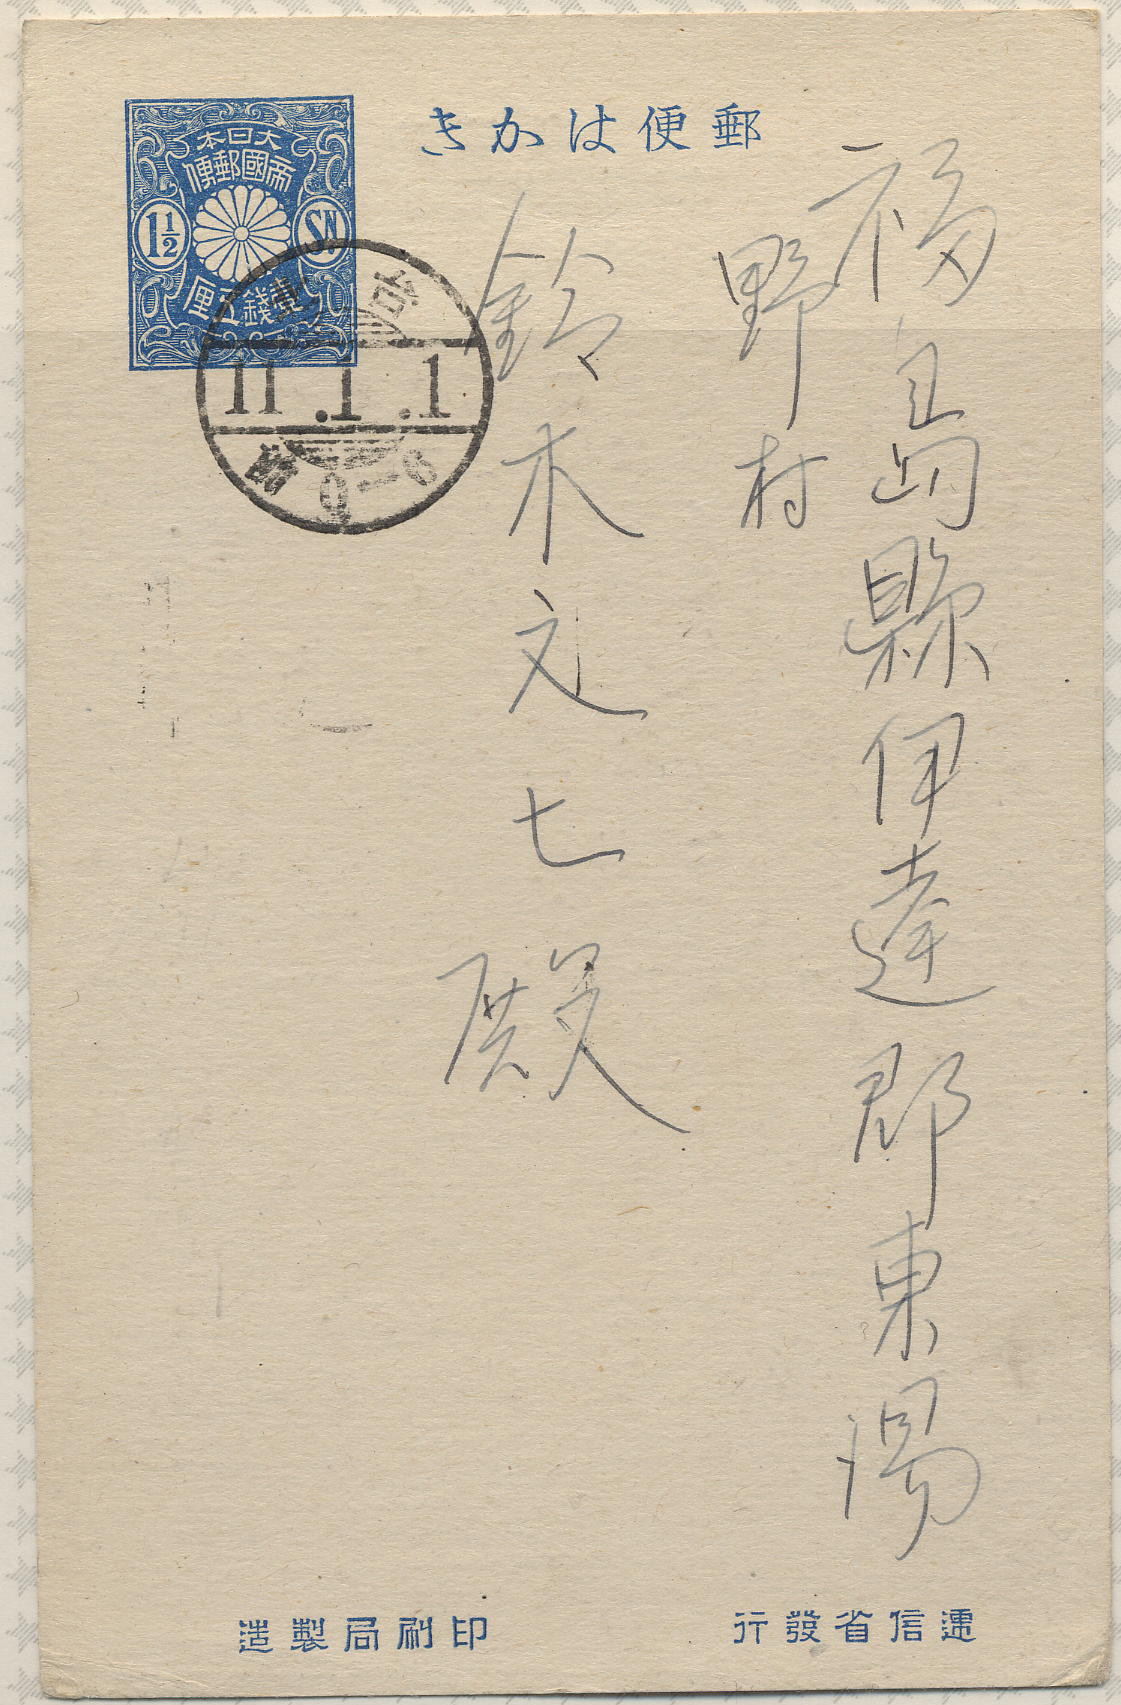 郵便はかき
大日本
帝國郵便
1½
SN.
壹錢五厘
台
11.1.1
前0-6
福島縣伊達郡東湯
野村
鈴木文七殿
遞信省發行
印刷局製造